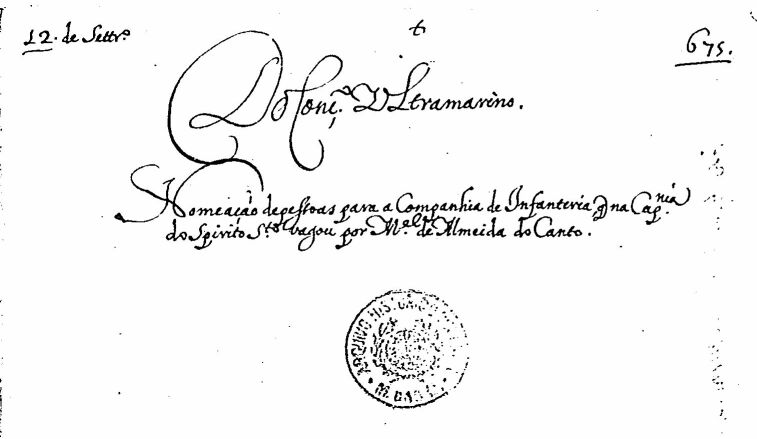 12. de Settr.º
675.
Do Conc.º Vltramarino.
Nomeação de pessoas para a Companhia de Infanteria q na Cap.nia
do Spirito S.to vagou por M.el de Almeida do Canto.
ARQUIVO HIST